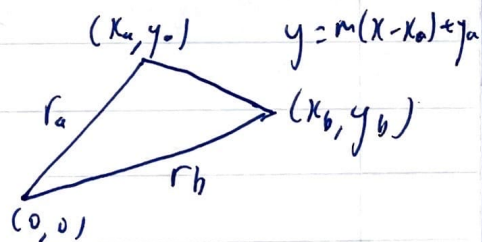 (xₐ, yₐ)
y = m(x - xₐ) + yₐ
rₐ
(x_b, y_b)
r_b
(0, 0)